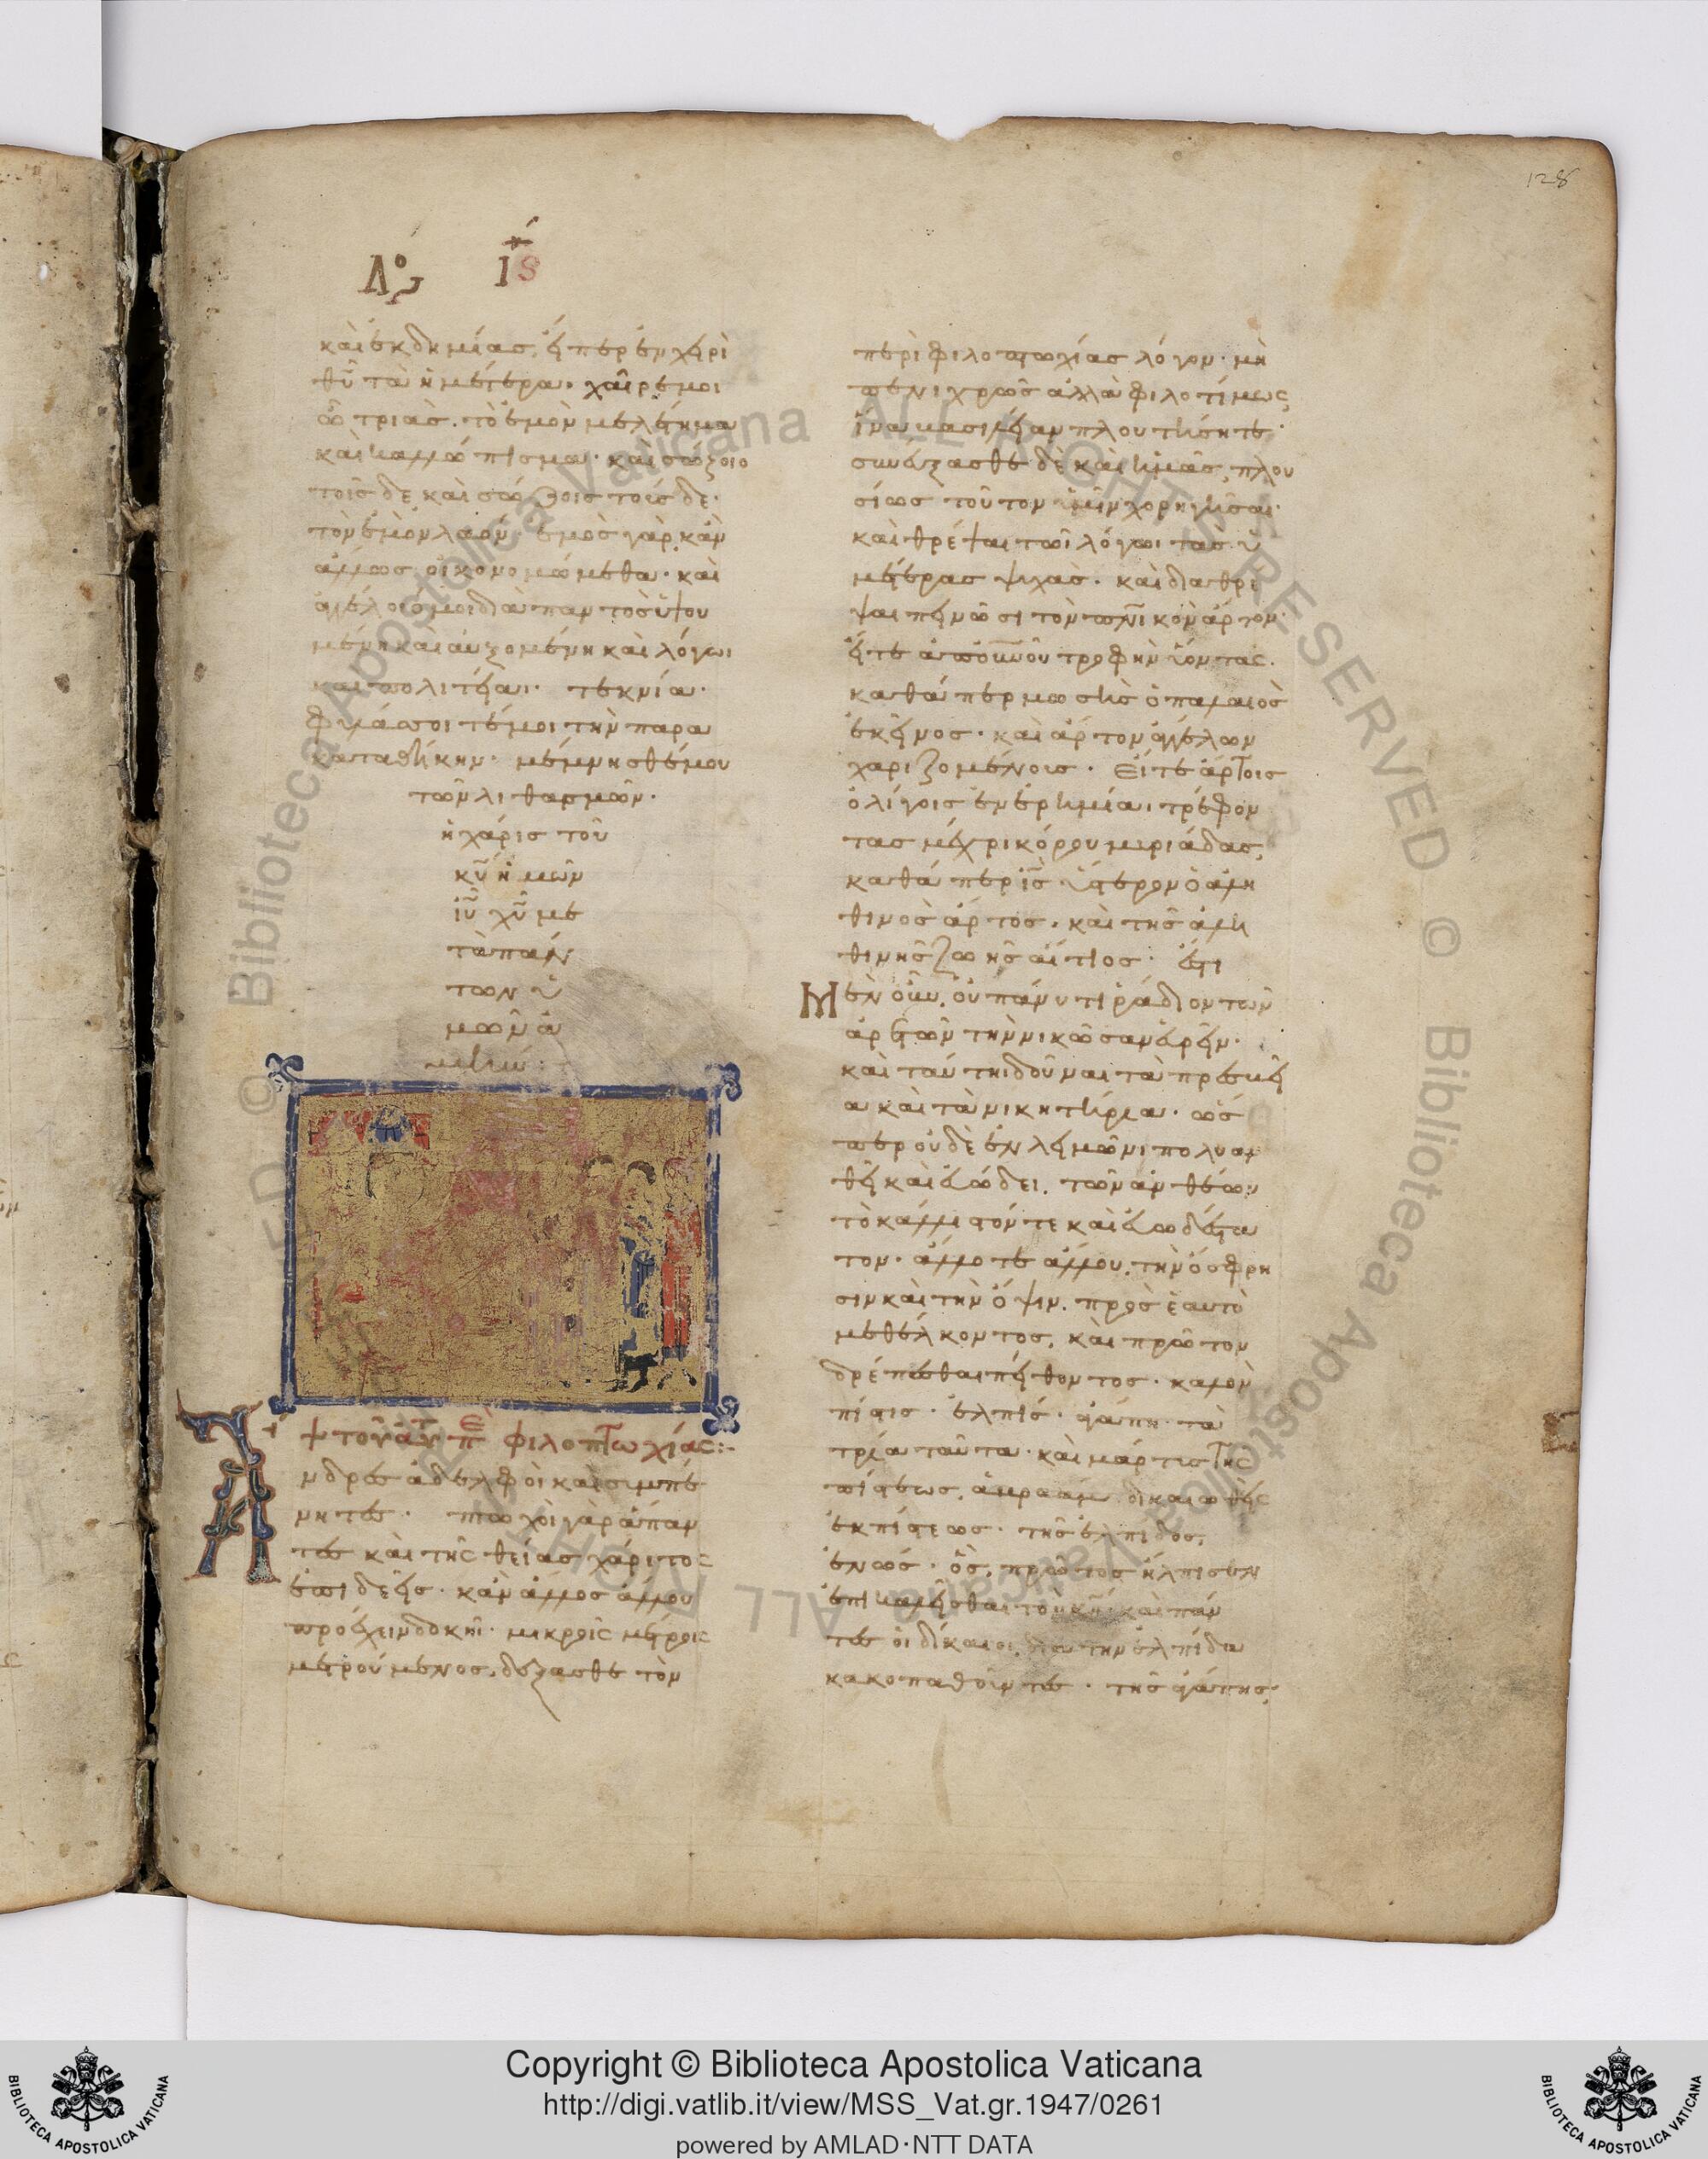 128
Λόγ ιϛ
καὶ ἐκδημίας, εἴπερ ἐν χειρὶ
θῦ τὰ ἡμέτερα. χαῖρέ μοι
ὦ τριὰς. τὸ ἐμὸν μελέτημα
καὶ καλλώπισμα. καὶ σώζοιο
τοῖσδε, καὶ σώζοις τούσδε.
τὸν ἐμὸν λαόν. ἐμὸς γὰρ κἂν
ἄλλως οἰκονομώμεθα. καὶ
ἀγγέλοιό μοι διὰ παντὸς ὑψου
μένη καὶ αὐξομένη καὶ λόγωι
καὶ πολιτείαι. τεκνία.
φυλάττοιτέ μοι τὴν παρα
καταθήκην. μέμνησθέ μου
τῶν λιθασμῶν.
ἡ χάρις τοῦ
κῦ ἡμῶν
ἰῦ χῦ με
τὰ πάν
των ὑ
μῶν ἀ
μήν:
τοῦ αὐτοῦ πε φιλοπτωχίας:-
Ἄ
νδρες ἀδελφοὶ καὶ συμπέ
νητες. πτωχοὶ γὰρ ἅπαν
τες καὶ τῆς θείας χάριτος
ἐπιδεεῖς. κἂν ἄλλος ἄλλου
προέχειν δοκῆι. μικροῖς μέτροις
μετρούμενος, δέξασθε τὸν
περὶ φιλοπτωχίας λόγον. μὴ
πενιχρῶς ἀλλὰ φιλοτίμως,
ἵνα βασιλείαν πλουτήσητε.
συνεύξασθε δὲ καὶ ἡμᾶς, πλου
σίως τοῦτον ὑμῖν χορηγῆσαι.
καὶ θρέψαι τῶι λόγωι τὰς ὑ
μετέρας ψυχὰς. καὶ διαθρύ
ψαι πεινῶσι τὸν πνικὸν ἄρτον.
εἴτε ἀπ' οὐνοῦ τροφὴν ὕοντας.
καθάπερ μωσῆς ὁ παλαιὸς
ἐκεῖνος. καὶ ἄρτον ἀγγέλων
χαριζομένους. Εἴτε ἄρτοις
ὀλίγοις ἐν ἐρημίαι τρέφον
τας μέχρι κόρου μυριάδας,
καθάπερ ἰς ὕστερον ὁ ἀλη
θινὸς ἄρτος. καὶ τῆς ἀλη
θινῆς ζωῆς αἴτιος. ἔστι
Μὲν οὖν, οὐ πάνυ τι ῥάδιον τῶν
ἀρετῶν τὴν νικῶσαν εὑρεῖν.
καὶ ταύτηι δοῦναι τὰ πρεσβεῖ
α καὶ τὰ νικητήρια. ὥσ
περ οὐδὲ ἐν λειμῶνι πολυαν
θεῖ καὶ εὐώδει, τῶν ἀνθέων
τὸ κάλλιστόν τε καὶ εὐωδέστα
τον. ἄλλοτε ἄλλου, τὴν ὄσφρη
σιν καὶ τὴν ὄψιν, πρὸς ἑαυτὸ
μεθέλκοντος, καὶ πρῶτον
δρέπεσθαι πείθοντος. καλὸν
πίστις. ἐλπίς. ἀγάπη. τὰ
τρία ταῦτα. καὶ μάρτυς τῆς
πίστεως, ἀβραὰμ. δικαιωθεὶς
ἐκ πίστεως. τῆς ἐλπίδος,
ἐνὼς. ὃς, πρῶτος ἤλπισεν
ἐπικαλεῖσθαι τὸν κν. καὶ πάν
τες οἱ δίκαιοι, διὰ τὴν ἐλπίδα
κακοπαθοῦντες. τῆς ἀγάπης,
Copyright © Biblioteca Apostolica Vaticana
http://digi.vatlib.it/view/MSS_Vat.gr.1947/0261
powered by AMLAD·NTT DATA
BIBLIOTECA APOSTOLICA VATICANA
BIBLIOTECA APOSTOLICA VATICANA
© Biblioteca Apostolica Vaticana ALL RIGHTS RESERVED © Biblioteca Apostolica Vaticana ALL RIGHTS RESERVED